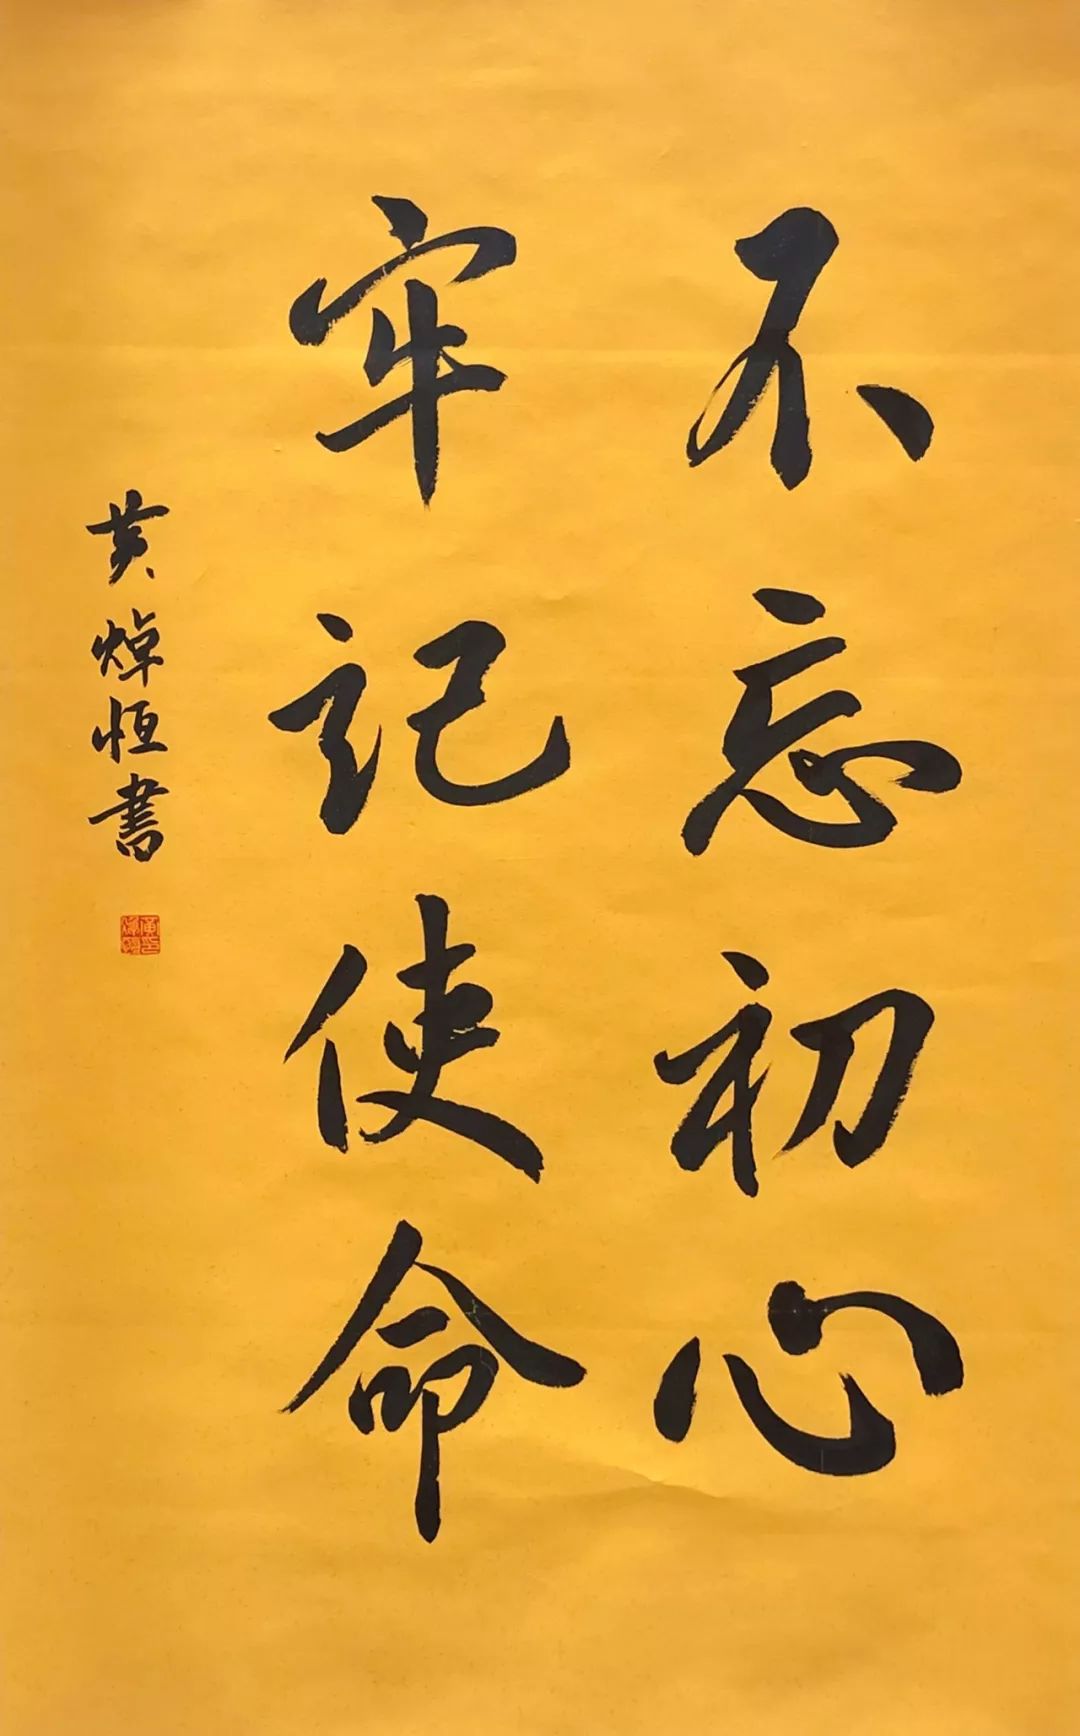 不忘初心
牢记使命
黄焯恒書